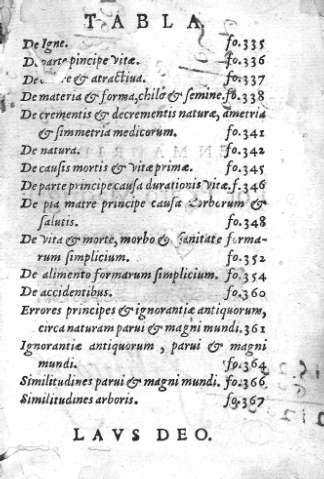 TABLA.
De Igne. fo.335
parte pincipe vitæ. fo.336
De & atractiua. fo.337
De materia & forma, chilo & semine. fo.338
De crementis & decrementis naturæ, ametria
& simmetria medicorum. fo.341
De natura. fo.342
De causis mortis & vitæ primæ. fo.345
De parte principe causa durationis vitæ. f.346
De pia matre principe causa &
salutis. fo.348
De vita & morte, morbo & sanitate forma-
rum simplicium. fo.352
De alimento formarum simplicium. fo.354
De accidentibus. fo.360
Errores principes & ignorantiæ antiquorum,
circa naturam parui & magni mundi. 361
Ignorantiæ antiquorum, parui & magni
mundi. fo.364
Similitudines parui & magni mundi. fo.366
Similitudines arboris. fo.367
LAVS DEO.